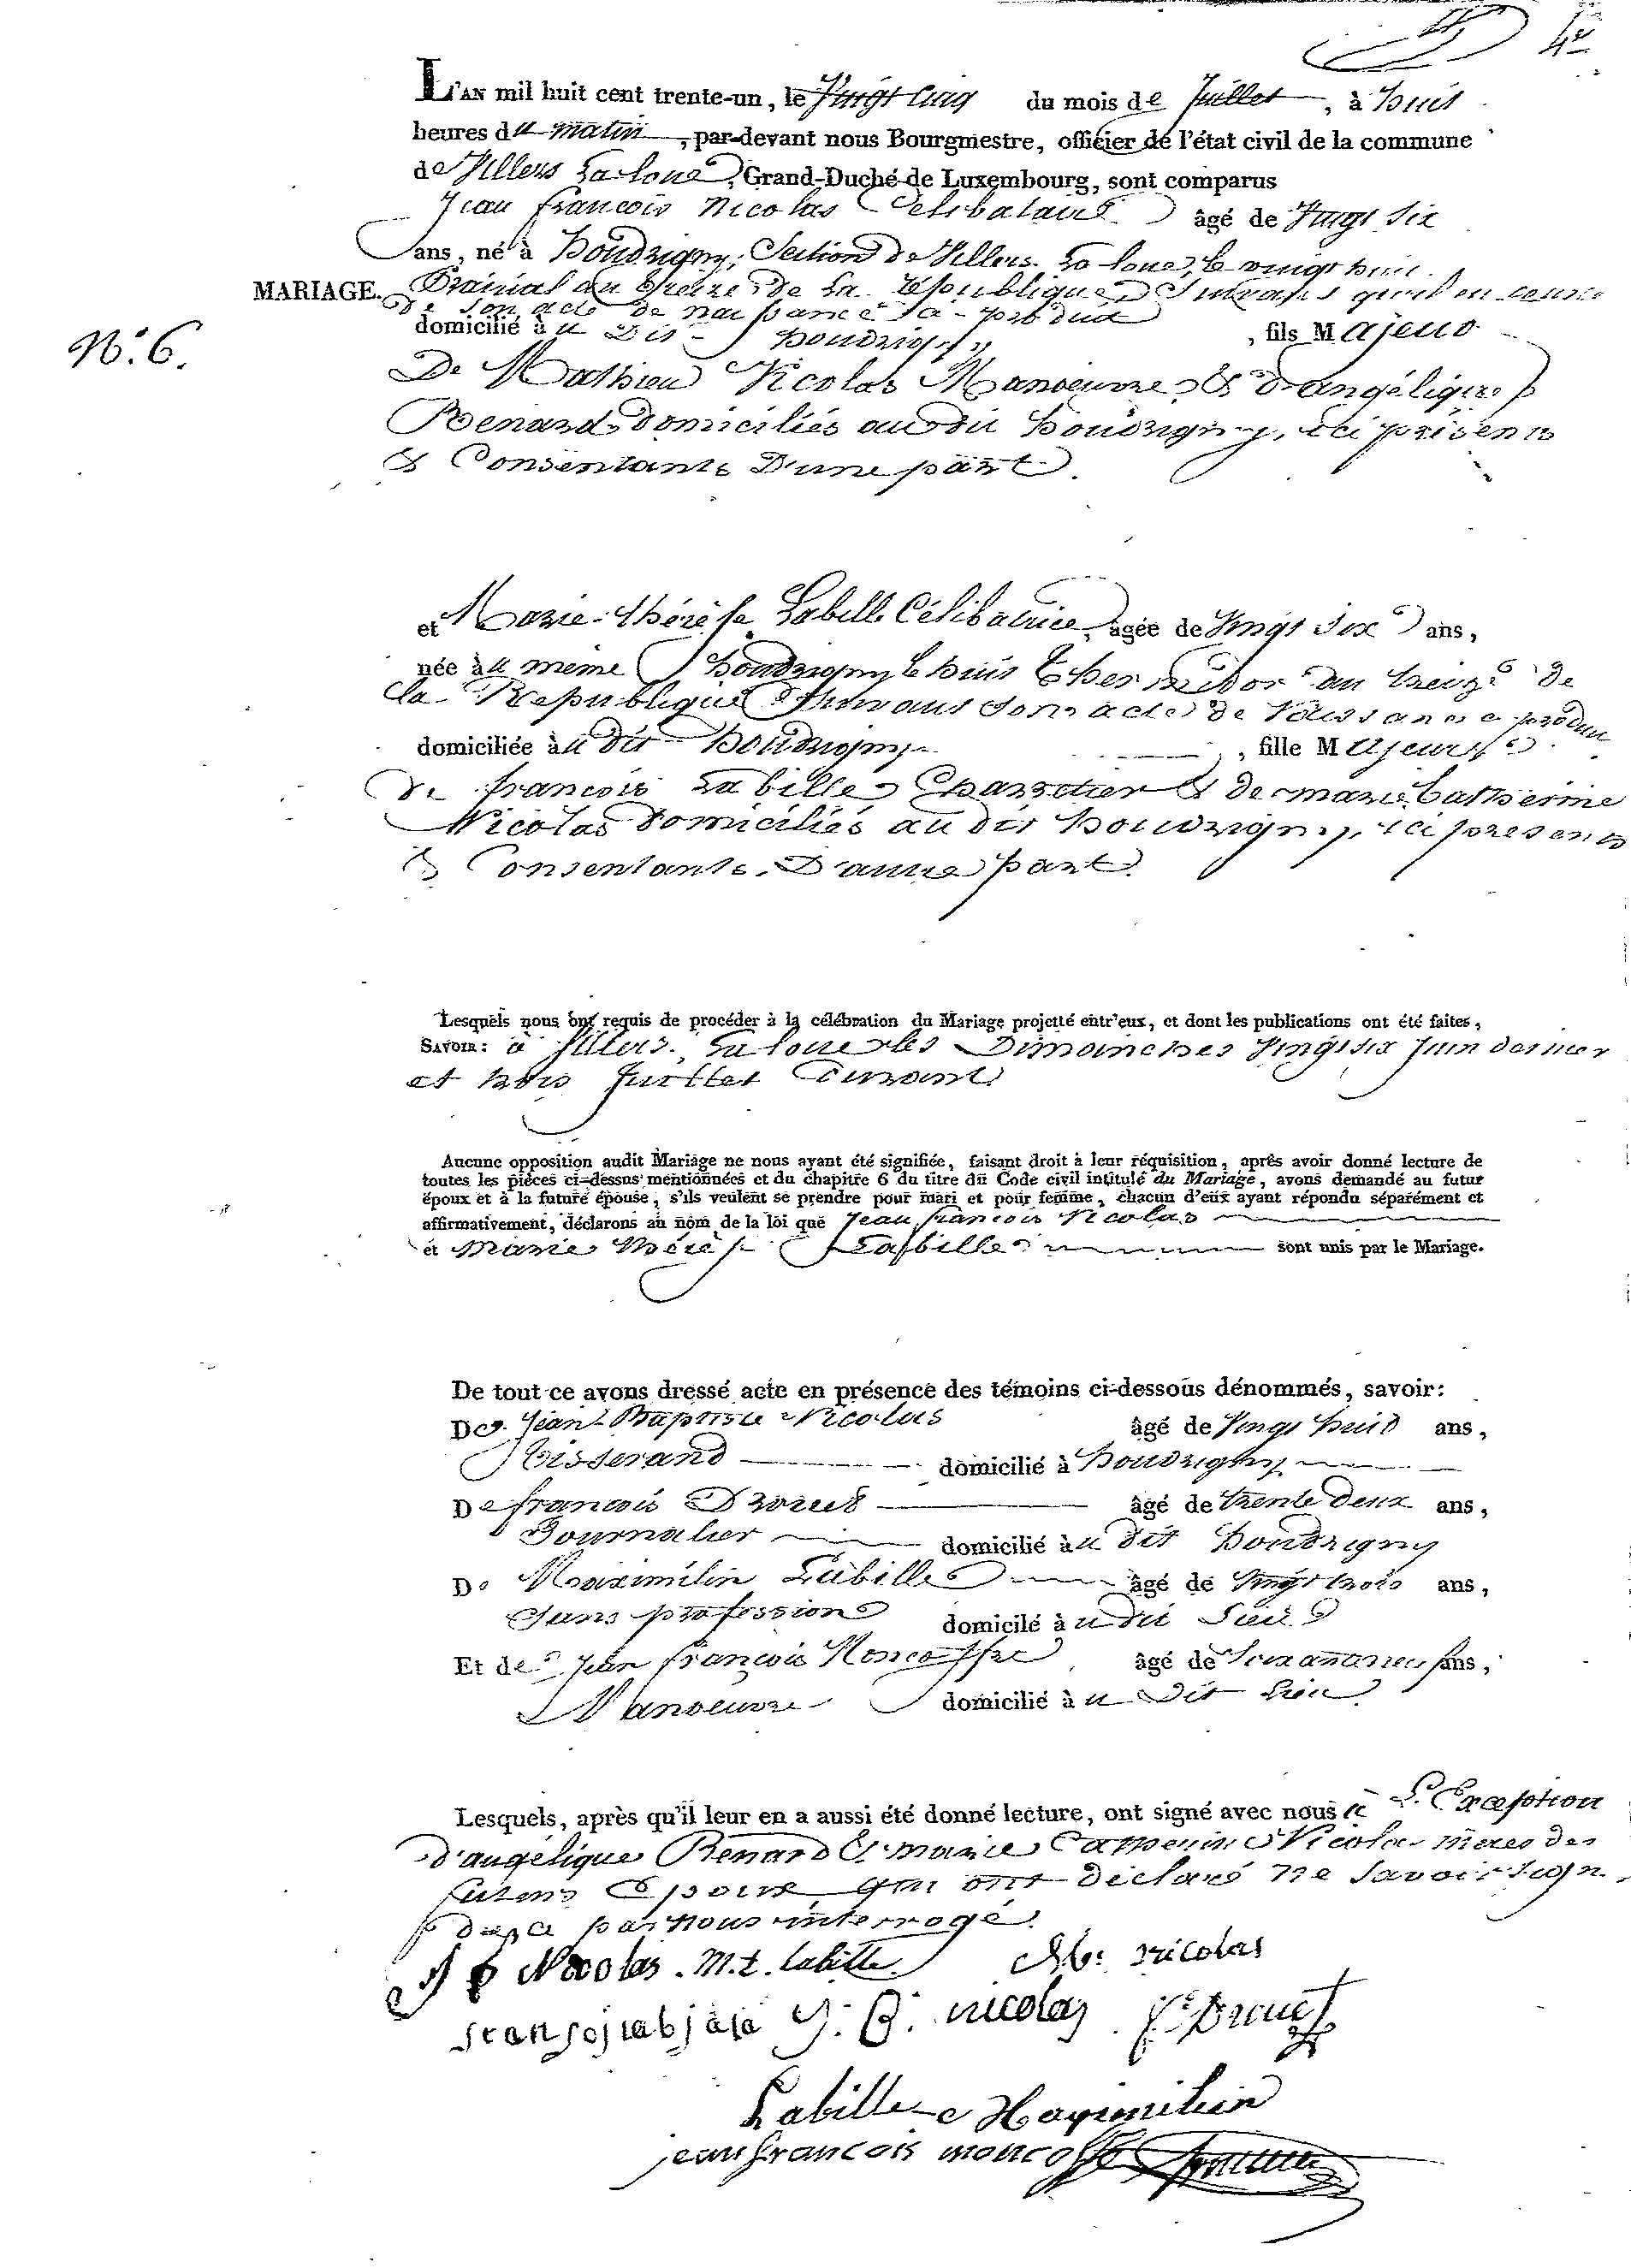 4e
L'AN mil huit cent trente-un, le Vingt Cinq du mois de Juillet, à huit
heures du matin, par-devant nous Bourgmestre, officier de l'état civil de la commune
de Villers La loue, Grand-Duché de Luxembourg, sont comparus
Jean françois Nicolas Celibataire âgé de Vingt Six
ans, né à houdrigny, Section de Villers La loue, le vingt huit
MARIAGE. Prairial an treize de La Republique Suivant qu'il en
de son acte de naissance produit
N.º 6.
domicilié au Dit houdrigny, fils Majeur
De Mathieu Nicolas Manoeuvre & d'angélique
Renard domiciliés audit houdrigny, ici présents
& Consentants D'une part.
et Marie thérèse Labille Célibatrice, âgée de Vingt Six ans,
née au même houdrigny le huit thermidor an treize de
la Republique Suivant son acte de Naissance produit
domiciliée au dit houdrigny, fille Majeure
de françois Labille Charretier & de marie Catherine
Nicolas domiciliés au dit houdrigny, ici présents
& Consentants. D'autre part.
Lesquels nous ont requis de procéder à la célébration du Mariage projetté entr'eux, et dont les publications ont été faites,
SAVOIR : à Villers La loue les Dimanches Vingt six Juin dernier
et trois Juillet Courant
Aucune opposition audit Mariage ne nous ayant été signifiée, faisant droit à leur réquisition, après avoir donné lecture de
toutes les pièces ci-dessus mentionnées et du chapitre 6 du titre du Code civil intitulé du Mariage, avons demandé au futur
époux et à la future épouse, s'ils veulent se prendre pour mari et pour femme, chacun d'eux ayant répondu séparément et
affirmativement, déclarons au nom de la loi que Jean françois Nicolas
et Marie thérèse Labille sont unis par le Mariage.
De tout ce avons dressé acte en présence des témoins ci-dessous dénommés, savoir :
De Jean Baptiste Nicolas âgé de Vingt huit ans,
Tisserand domicilié à houdrigny
De françois Drouet âgé de trente deux ans,
Journalier domicilié au dit houdrigny
De Maximilin Labille âgé de Vingt trois ans,
Sans profession domicilé au dit Lieu
Et de Jean françois Moncousse âgé de Soixante neuf ans,
Manoeuvre domicilié au Dit Lieu
Lesquels, après qu'il leur en a aussi été donné lecture, ont signé avec nous à L'Exception
d'angélique Renard & marie Catherine Nicolas mères des
futurs Epoux qui ont déclaré ne Savoir signer
de ce par nous interrogé.
J f Nicolas. M. t. labille. Mt. nicolas
J. B. nicolas fs. Drouet
Labille Maximilien
jean francois